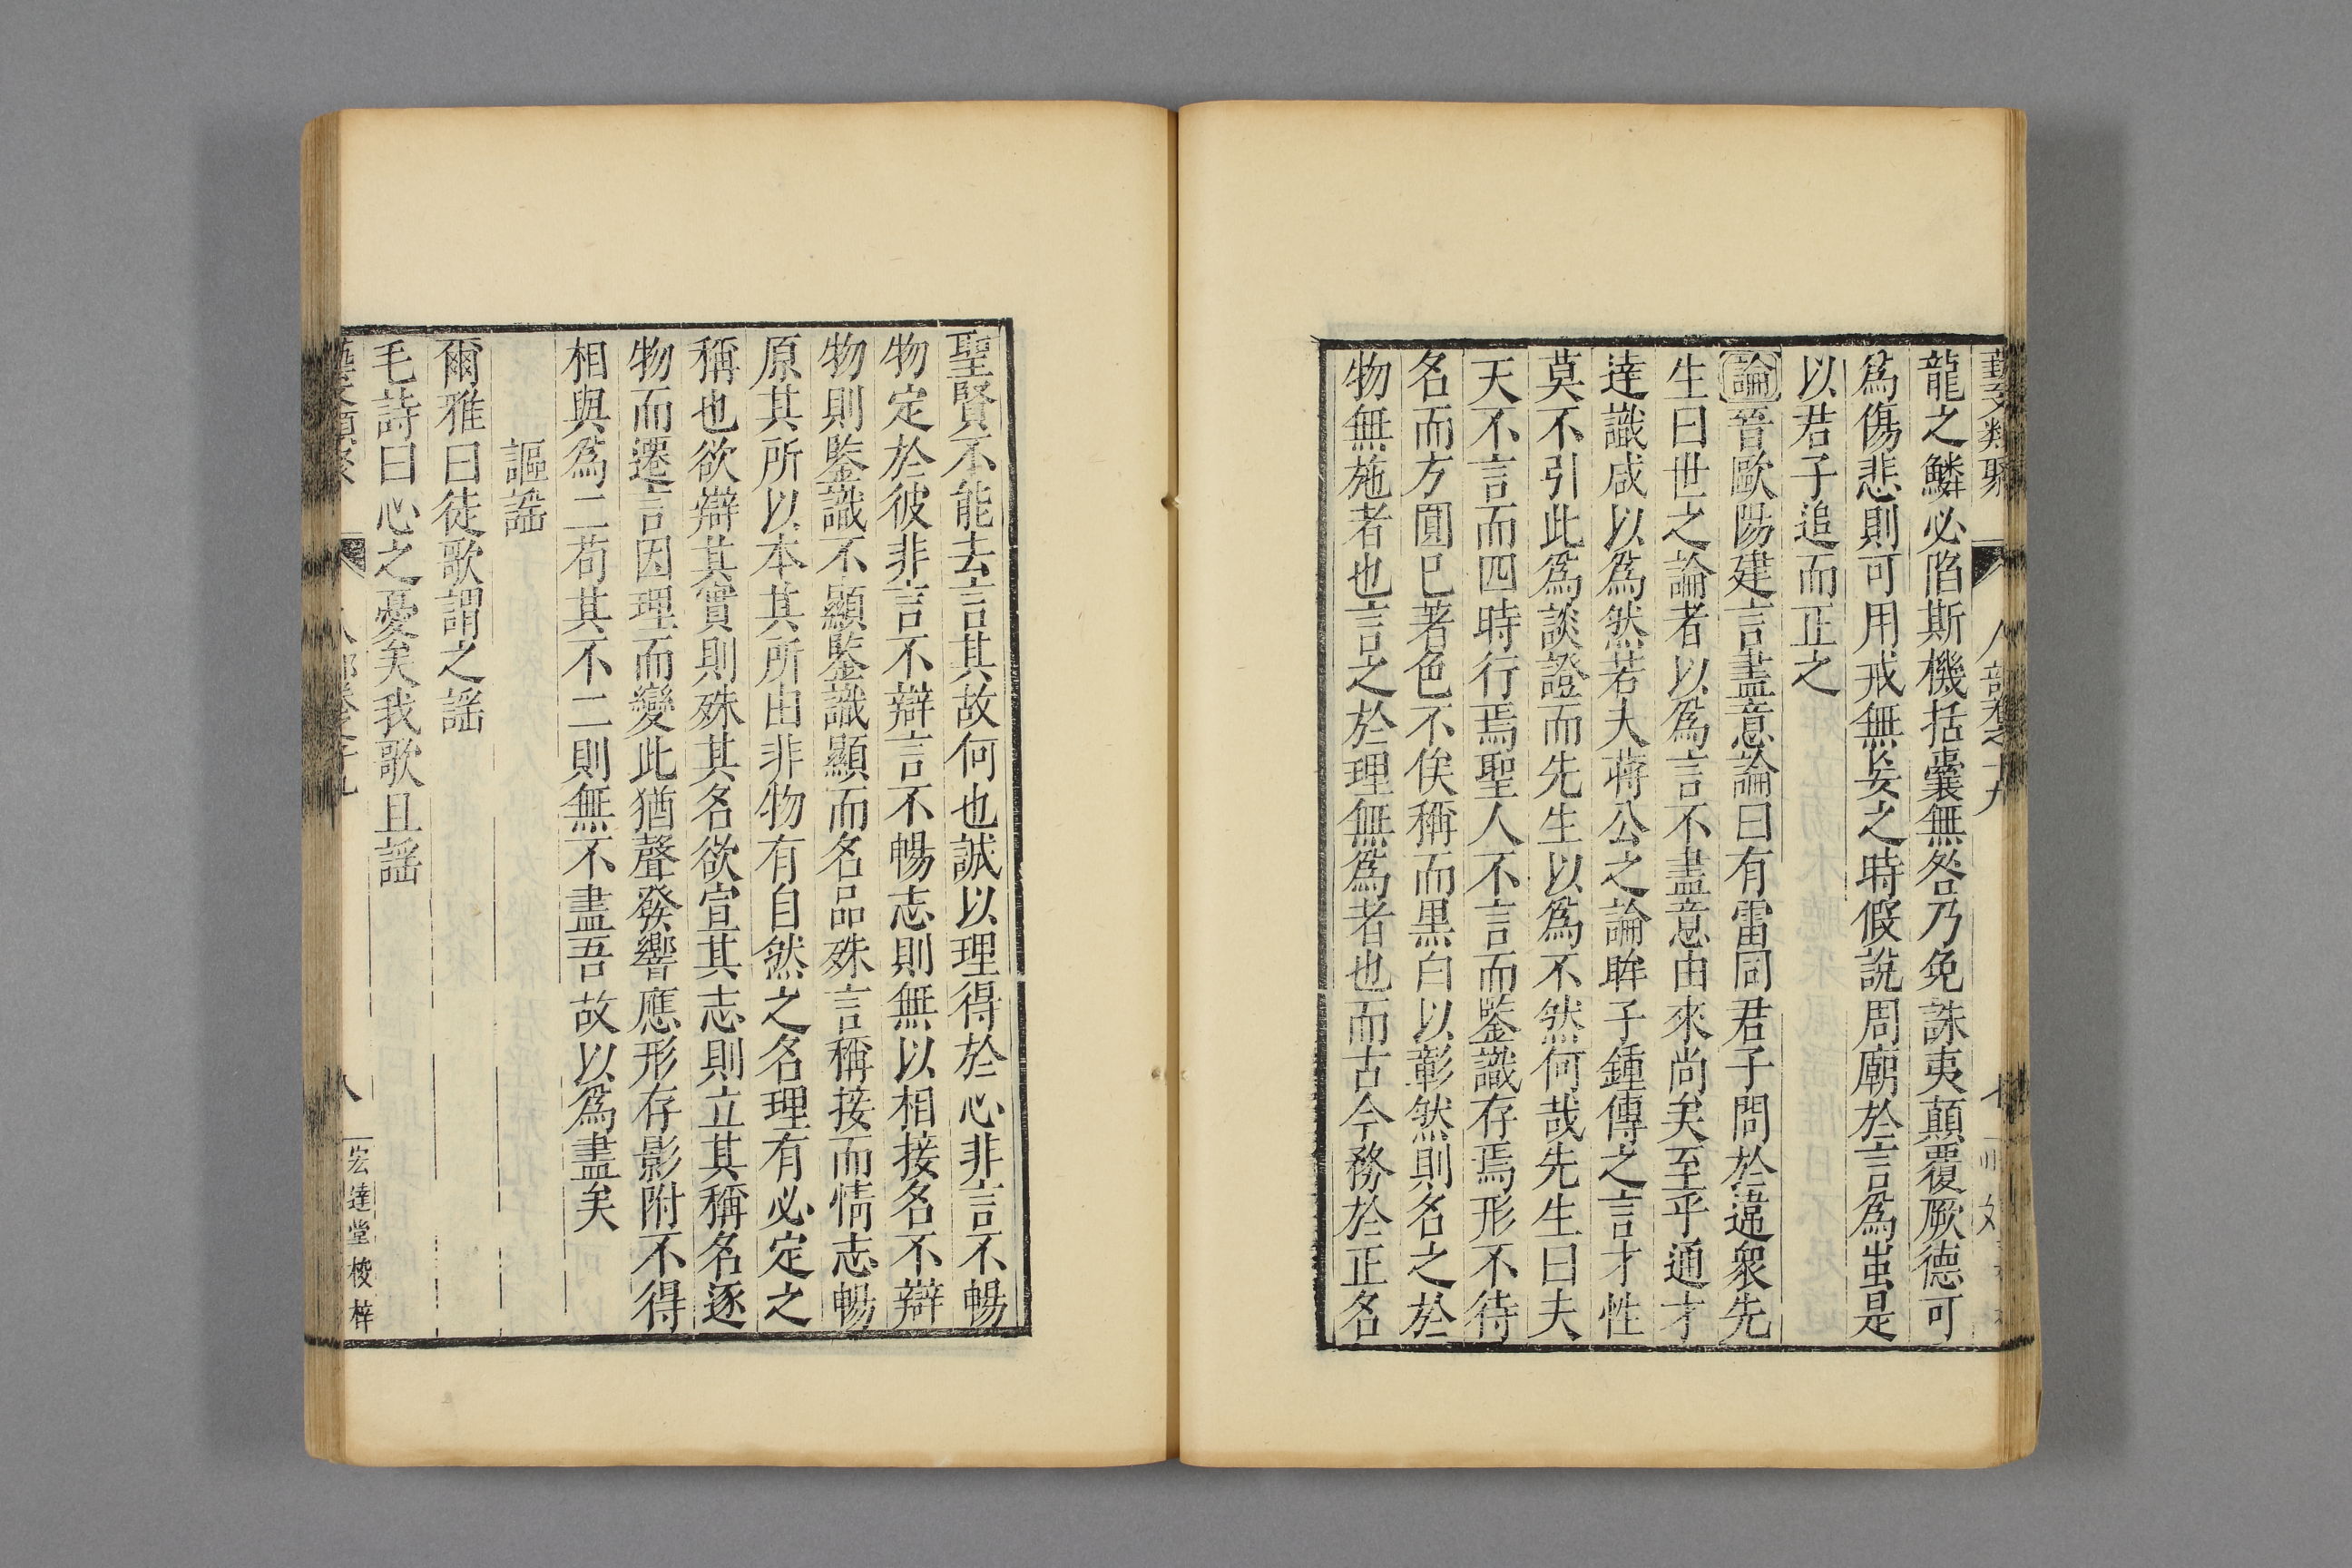 藝文類聚 人部卷之十九 七
龍之鱗必陷斯機括囊無咎乃免誅夷顛覆厥德可
爲傷悲則可用戒無妄之時假說周廟於言爲蚩是
以君子追而正之
論晉歐陽建言盡意論曰有雷同君子問於違衆先
生曰世之論者以爲言不盡意由來尚矣至乎通才
達識咸以爲然若夫蔣公之論眸子鍾傳之言才性
莫不引此爲談證而先生以爲不然何哉先生曰夫
天不言而四時行焉聖人不言而鑒識存焉形不待
名而方圓已著色不俟稱而黑白以彰然則名之於
物無施者也言之於理無爲者也而古今務於正名
聖賢不能去言其故何也誠以理得於心非言不暢
物定於彼非言不辯言不暢志則無以相接名不辯
物則鑒識不顯鑒識顯而名品殊言稱接而情志暢
原其所以本其所由非物有自然之名理有必定之
稱也欲辯其實則殊其名欲宣其志則立其稱名逐
物而遷言因理而變此猶聲發響應形存影附不得
相與爲二苟其不二則無不盡吾故以爲盡矣
謳謠
爾雅曰徒歌謂之謠
毛詩曰心之憂矣我歌且謠
八 宏達堂校梓